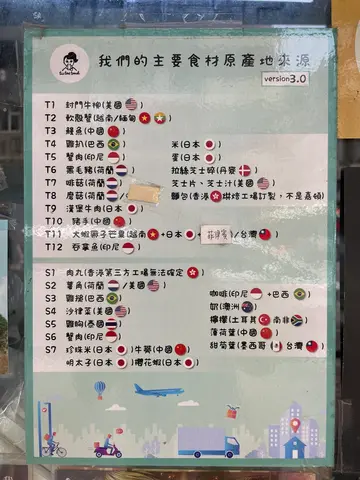 我們的主要食材原產地來源
version3.0
T1 封門牛柳(美國)
T2 軟殼蟹(越南/緬甸)
T3 鰻魚(中國)
T4 雞扒(巴西) 米(日本)
T5 蟹肉(印尼) 蛋(日本)
T6 黑毛豬(荷蘭) 拉絲芝士碎(丹麥)
T7 啫菇(荷蘭) 芝士片、芝士汁(美國)
T8 磨菇(荷蘭) 麵包(香港烘焙工場訂製,不是嘉頓)
T9 漢堡牛肉(日本)
T10 豬手(中國)
T11 大蝦 (越南+日本 菲律賓)/台灣
T12 吞拿魚(印尼)
S1 肉丸(香港第三方工場無法確定)
S2 薯角(荷蘭/美國) 咖啡(印尼+巴西)
S3 雞槌(巴西) 奶(澳洲)
S4 沙律菜(美國) 檸檬(土耳其 南非)
S5 雞胸(泰國) 薄荷葉(中國)
S6 蟹肉(印尼) 甜菊葉(墨西哥 台灣)
S7 珍珠米(日本)牛蒡(中國)
明太子(日本)櫻花蝦(日本)